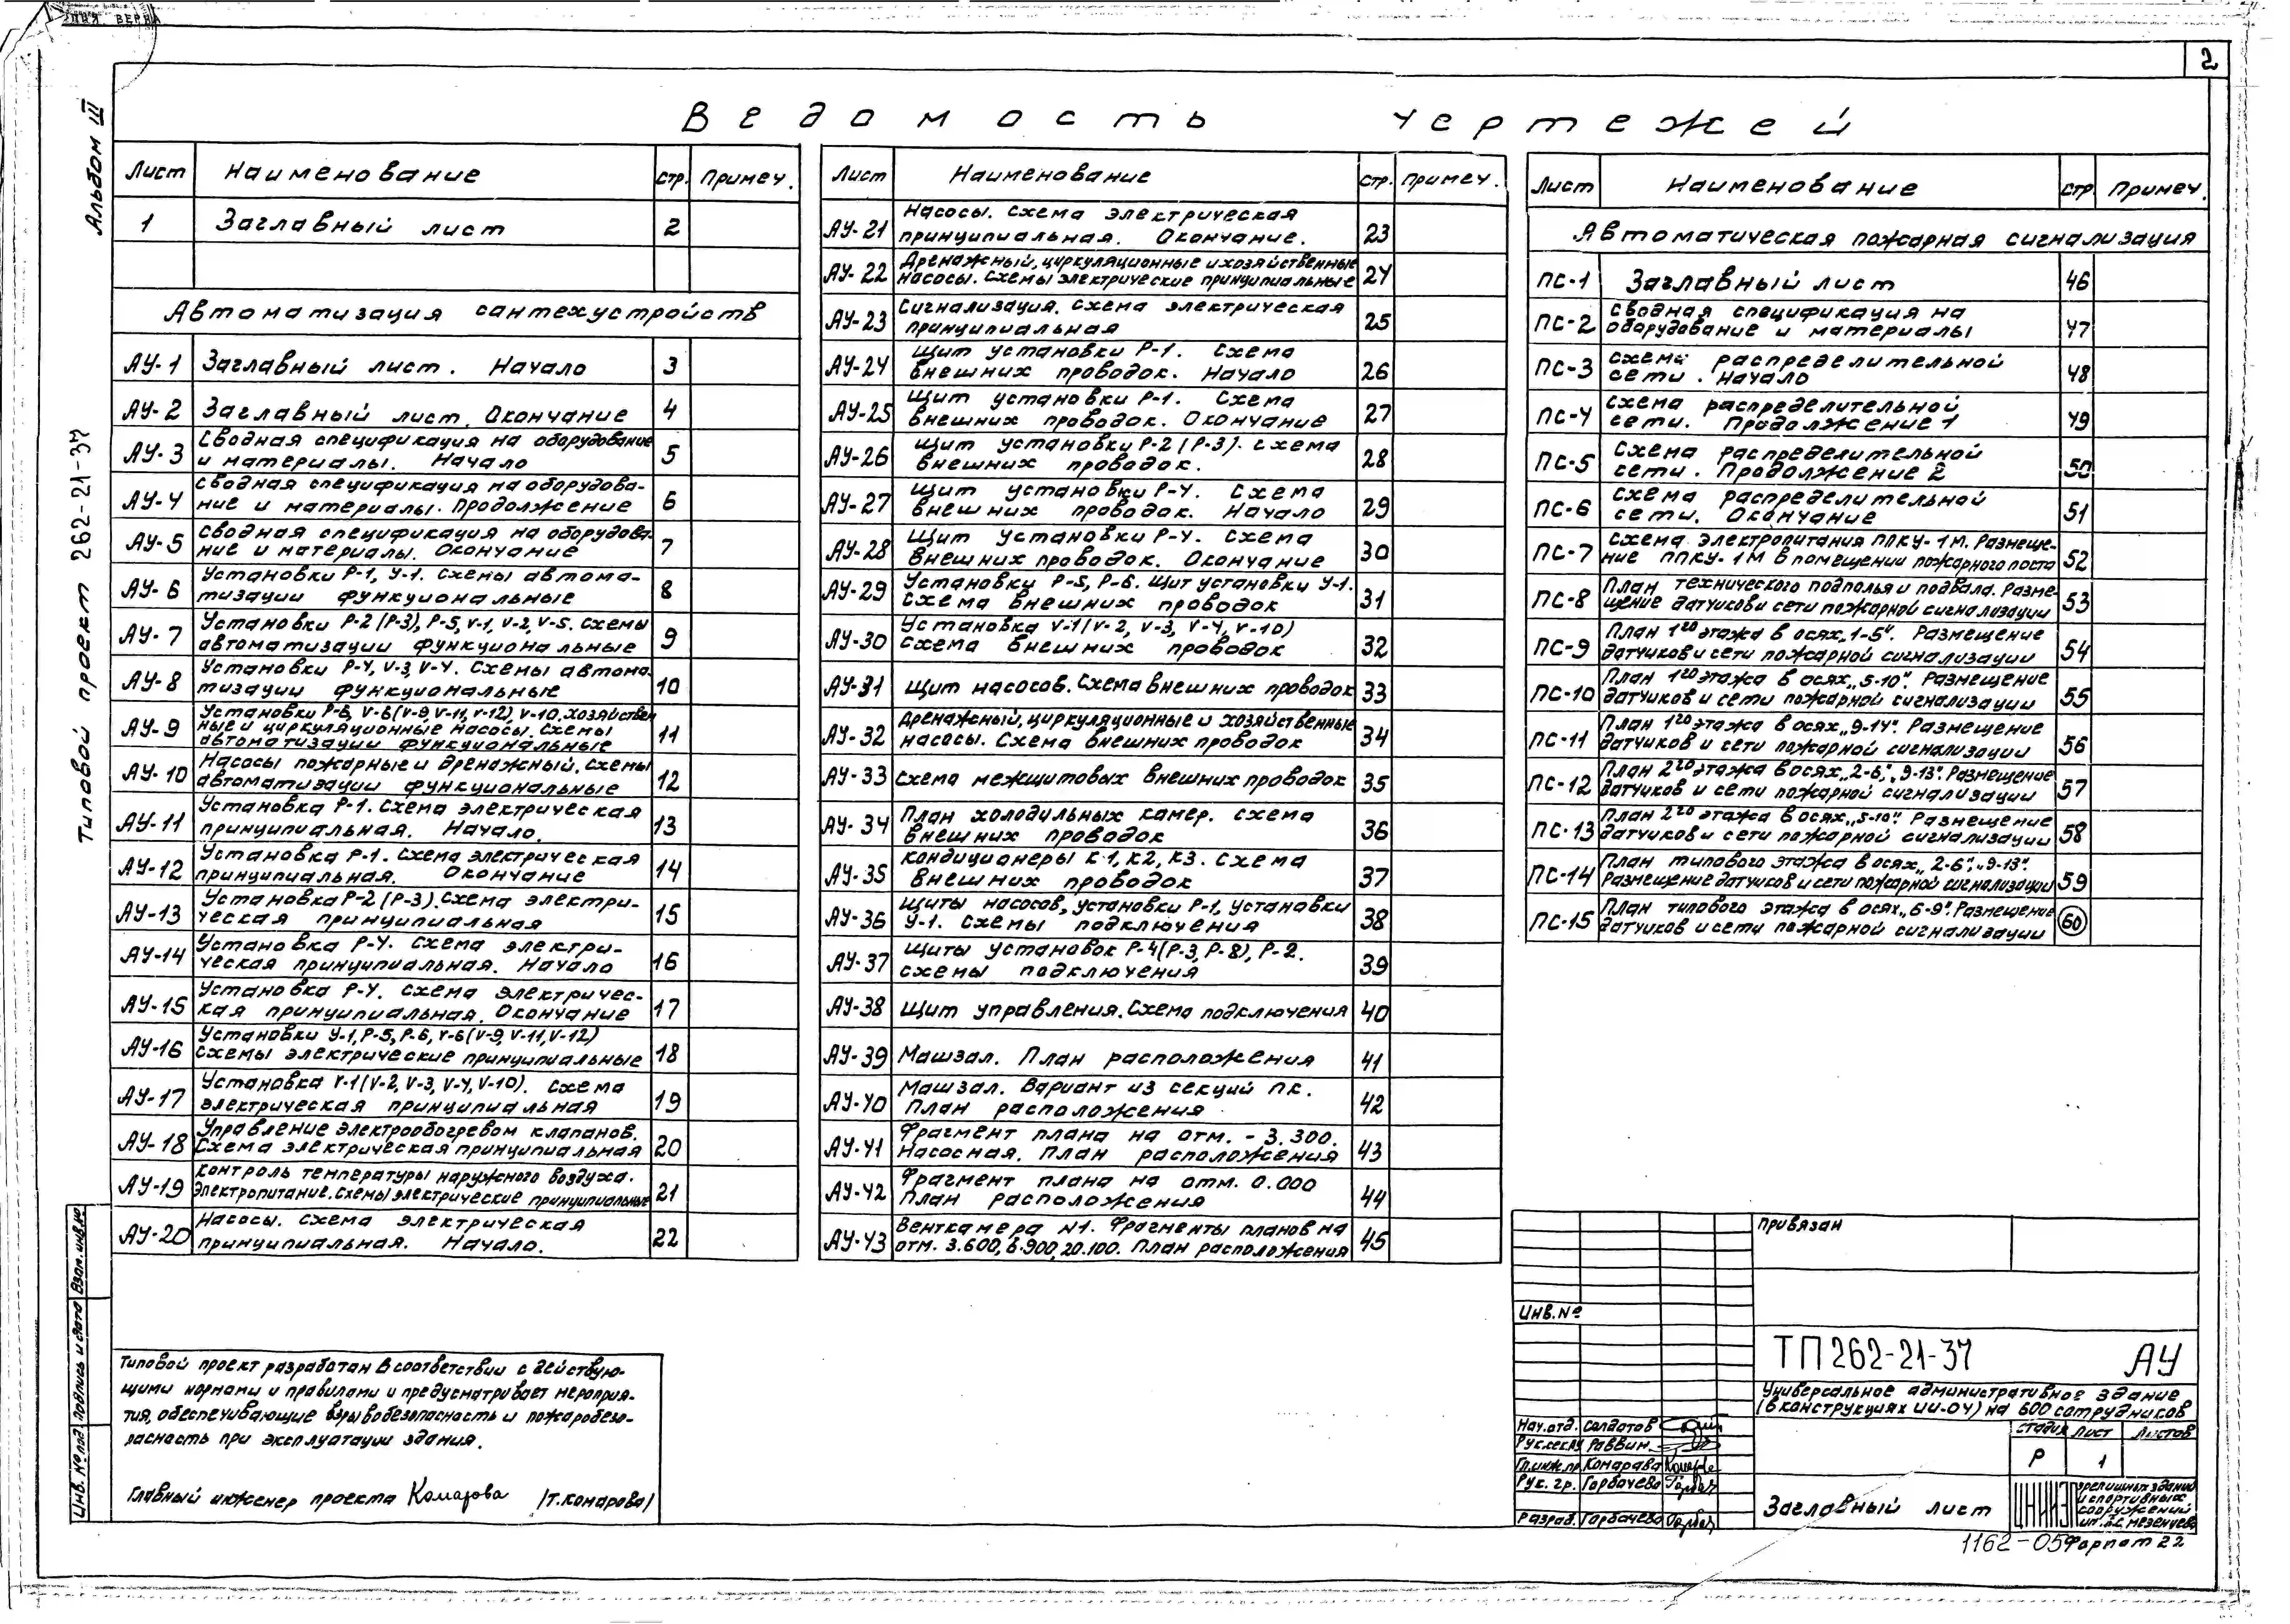 2
Альбом III
Типовой проект 262-21-37
Ведомость чертежей
Лист Наименование стр. Примеч.
1 Заглавный лист 2
Автоматизация сантехустройств
АУ-1 Заглавный лист. Начало 3
АУ-2 Заглавный лист. Окончание 4
АУ-3 Сводная спецификация на оборудование
и материалы. Начало 5
АУ-4 Сводная спецификация на оборудова-
ние и материалы. Продолжение 6
АУ-5 Сводная спецификация на оборудова-
ние и материалы. Окончание 7
АУ-6 Установки Р-1, У-1. Схемы автома-
тизации функциональные 8
АУ-7 Установки Р-2 (Р-3), Р-5, V-1, V-2, V-5. Схемы
автоматизации функциональные 9
АУ-8 Установки Р-4, V-3, V-4. Схемы автома-
тизации функциональные 10
АУ-9 Установки Р-6, V-6 (V-9, V-11, V-12), V-10. Хозяйствен
ные и циркуляционные насосы. Схемы
автоматизации функциональные 11
АУ-10 Насосы пожарные и дренажный. Схемы
автоматизации функциональные 12
АУ-11 Установка Р-1. Схема электрическая
принципиальная. Начало. 13
АУ-12 Установка Р-1. Схема электрическая
принципиальная. Окончание 14
АУ-13 Установка Р-2 (Р-3). Схема электри-
ческая принципиальная 15
АУ-14 Установка Р-4. Схема электри-
ческая принципиальная. Начало 16
АУ-15 Установка Р-4. Схема электричес-
кая принципиальная. Окончание 17
АУ-16 Установки У-1, Р-5, Р-6, V-6 (V-9, V-11, V-12)
схемы электрические принципиальные 18
АУ-17 Установка V-1 (V-2, V-3, V-4, V-10). Схема
электрическая принципиальная 19
АУ-18 Управление электрообогревом клапанов.
Схема электрическая принципиальная 20
АУ-19 Контроль температуры наружного воздуха.
Электропитание. Схемы электрические принципиальные 21
АУ-20 Насосы. Схема электрическая
принципиальная. Начало. 22
Лист Наименование стр. Примеч.
АУ-21 Насосы. Схема электрическая
принципиальная. Окончание. 23
АУ-22 Дренажный, циркуляционные и хозяйственные
насосы. Схемы электрические принципиальные 24
АУ-23 Сигнализация. Схема электрическая
принципиальная 25
АУ-24 Щит установки Р-1. Схема
внешних проводок. Начало 26
АУ-25 Щит установки Р-1. Схема
внешних проводок. Окончание 27
АУ-26 Щит установки Р-2 (Р-3). Схема
внешних проводок. 28
АУ-27 Щит установки Р-4. Схема
внешних проводок. Начало 29
АУ-28 Щит установки Р-4. Схема
внешних проводок. Окончание 30
АУ-29 Установки Р-5, Р-6. Щит установки У-1.
Схема внешних проводок 31
АУ-30 Установка V-1 (V-2, V-3, V-4, V-10)
Схема внешних проводок 32
АУ-31 Щит насосов. Схема внешних проводок 33
АУ-32 Дренажный, циркуляционные и хозяйственные
насосы. Схема внешних проводок 34
АУ-33 Схема межщитовых внешних проводок 35
АУ-34 План холодильных камер. Схема
внешних проводок 36
АУ-35 Кондиционеры К1, К2, К3. Схема
внешних проводок 37
АУ-36 Щиты насосов, установки Р-1, установки
У-1. Схемы подключения 38
АУ-37 Щиты установок Р-4 (Р-3, Р-8), Р-2.
схемы подключения 39
АУ-38 Щит управления. Схема подключения 40
АУ-39 Машзал. План расположения 41
АУ-40 Машзал. Вариант из секций ПК.
План расположения 42
АУ-41 Фрагмент плана на отм. - 3.300.
Насосная. План расположения 43
АУ-42 Фрагмент плана на отм. 0.000
План расположения 44
АУ-43 Венткамера N1. Фрагменты планов на
отм. 3.600, 6.900, 20.100. План расположения 45
Лист Наименование стр Примеч.
Автоматическая пожарная сигнализация
ПС-1 Заглавный лист 46
ПС-2 Сводная спецификация на
оборудование и материалы 47
ПС-3 Схема распределительной
сети. Начало 48
ПС-4 Схема распределительной
сети. Продолжение 1 49
ПС-5 Схема распределительной
сети. Продолжение 2 50
ПС-6 Схема распределительной
сети. Окончание 51
ПС-7 Схема электропитания ППКУ-1М. Размеще-
ние ППКУ-1М в помещении пожарного поста 52
ПС-8 План технического подполья и подвала. Разме-
щение датчиков и сети пожарной сигнализации 53
ПС-9 План 1го этажа в осях „1-5“. Размещение
датчиков и сети пожарной сигнализации 54
ПС-10 План 1го этажа в осях „5-10“. Размещение
датчиков и сети пожарной сигнализации 55
ПС-11 План 1го этажа в осях „9-14“. Размещение
датчиков и сети пожарной сигнализации 56
ПС-12 План 2го этажа в осях „2-6“, „9-13“. Размещение
датчиков и сети пожарной сигнализации 57
ПС-13 План 2го этажа в осях „5-10“. Размещение
датчиков и сети пожарной сигнализации 58
ПС-14 План типового этажа в осях „2-6“, „9-13“.
Размещение датчиков и сети пожарной сигнализации 59
ПС-15 План типового этажа в осях „6-9“. Размещение
датчиков и сети пожарной сигнализации 60
Типовой проект разработан в соответствии с действую-
щими нормами и правилами и предусматривает мероприя-
тия, обеспечивающие взрывобезопасность и пожаробезо-
пасность при эксплуатации здания.
Главный инженер проекта Комарова /Т. Комарова/
Инв. № под. Подпись и дата Взам. инв. №
Привязан
Инв. №
ТП 262-21-37 АУ
Универсальное административное здание
(в конструкциях ИИ-04) на 600 сотрудников
Нач. отд. Солдатов
Рук. сек. АУ Раввин
Гл. инж. пр. Комарова
Рук. гр. Горбачева
Разраб. Горбачева
Стадия Лист Листов
Р 1
Заглавный лист
ЦНИИЭП
зрелищных зданий
и спортивных
сооружений
им. Б.С. Мезенцева
1162-05 Формат 22